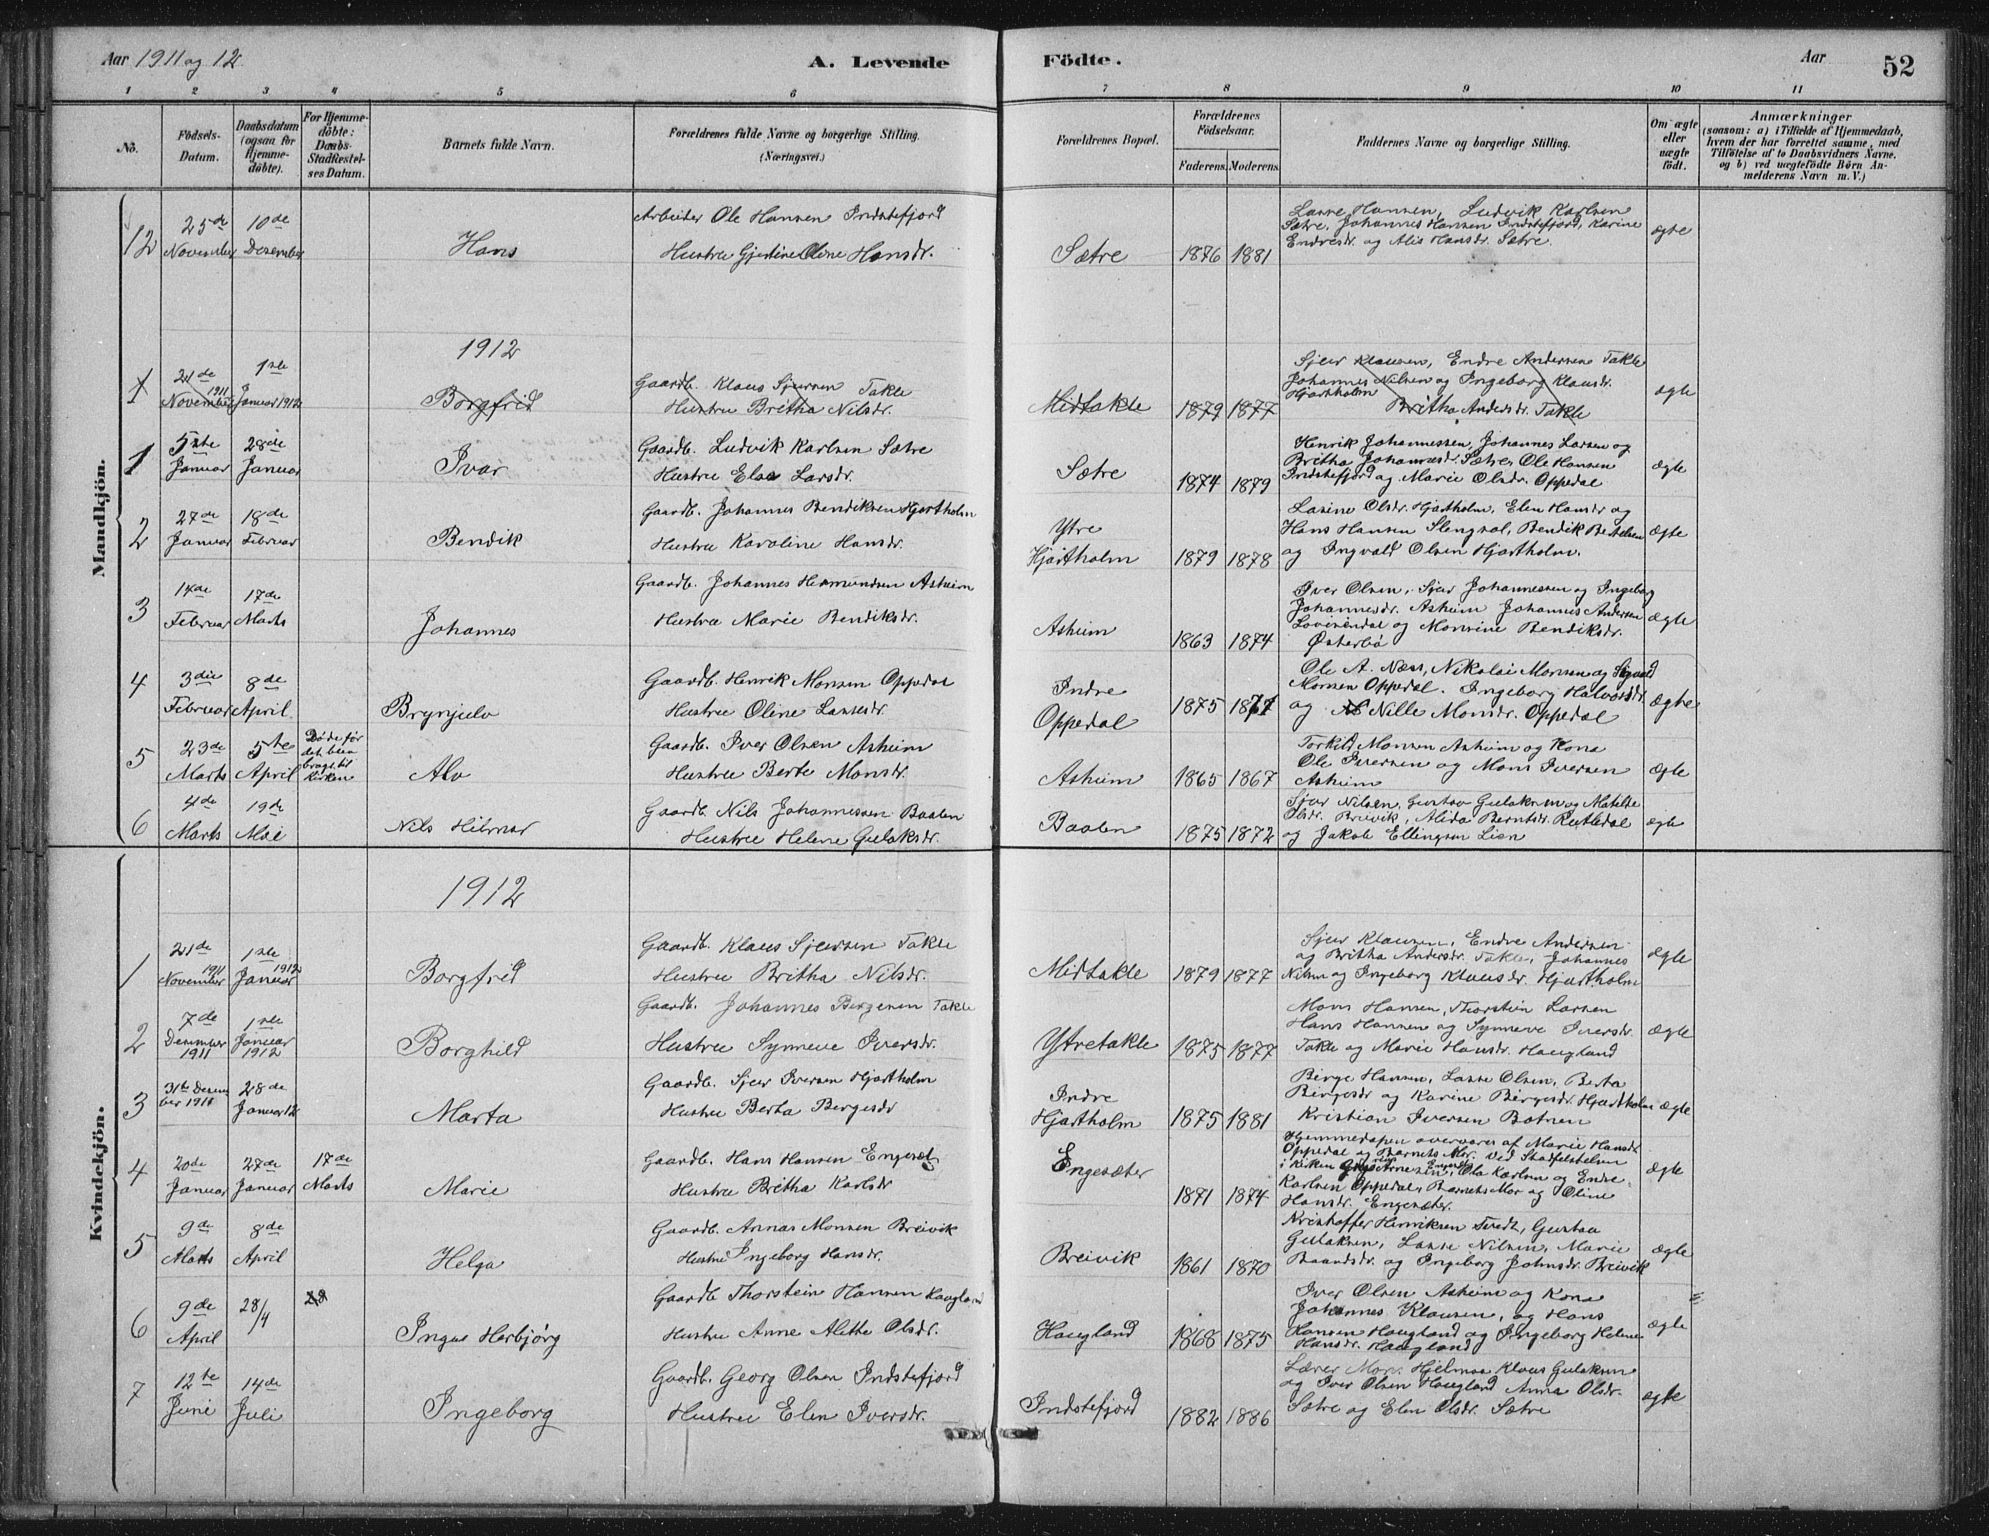 Aar 1911 og 12.
A. Levende Födte.
Aar
52
1 2 3 4 5 6 7 8 9 10 11
No.
Födsels-Datum.
Daabsdatum (ogsaa for Hjemme-döbte).
For Hjemme-döbte: Daabs-Stadfæstel-ses Datum.
Barnets fulde Navn.
Forældrenes fulde Navne og borgerlige Stilling. (Næringsvei.)
Forældrenes Bopæl.
Forældrenes Födselsaar.
Faderens. Moderens.
Faddernes Navne og borgerlige Stilling.
Om ægte eller uægte födt.
Anmærkninger
(saasom: a) i Tilfælde af Hjemmedaab, hvem der har forrettet samme, med Tilföielse af to Daabsvidners Navne, og b) ved uægtefödte Börn Anmelderens Navn m. V.)
Mandkjön.
12 25de November 10de Desember
Hans
Arbeider Ole Hansen Indstefjord
Hustru Gjertine Oline Hansdr.
Sætre 1876 1881
Lasse Hansen, Ludvik Karlsen
Sætre, Johannes Hansen Indstefjord, Karine
Endresdr. og Alis Hansdr. Sætre.
ægte
1912
1 21de November 1911 1ste Januar 1912
Borgfrid
Gaardb. Klaus Sjursen Takle
Hustru Britha Nilsdr.
Midtakle 1879 1877
Sjur Klausen, Endre Andersen Takle
Johannes Nilsen og Ingeborg Klausdr.
Hjartholm
Britha Andersdr. Takle
ægte
1 5te Januar 28de Januar
Ivar
Gaardb. Ludvik Karlsen Sætre
Hustru Elsa Larsdr.
Sætre 1874 1879
Henrik Johannessen, Johannes Larsen og
Britha Johannesdr. Sætre, Ole Hansen
Indstefjord og Marie Olsdr. Oppedal
ægte
2 27de Januar 18de Februar
Bendik
Gaardb. Johannes Bendiksen Hjartholm
Hustru Karoline Hansdr.
Ytre
Hjartholm 1879 1878
Lasine Olsdr. Hjartholm, Elen Hansdr og
Hans Hansen Slengsol, Bendik Bertelsen
og Ingvald Olsen Hjartholm.
ægte
3 14de Februar 17de Marts
Johannes
Gaardb. Johannes Hermundsen Asheim
Hustru Marie Bendiksdr.
Asheim 1863 1874
Iver Olsen, Sjur Johannessen og Ingeborg
Johannesdr. Asheim Johannes Andersen
og Monsine Bendiksdr.
Østerbø
ægte
4 3die Februar 8de April
Brynjulv
Gaardb. Henrik Monsen Oppedal
Hustru Oline Lassesdr.
Indre
Oppedal 1875 1871
Ole A. Næss, Nikolai Monsen og Sigvald
Monsen Oppedal. Ingeborg Halvorsdr.
og Nille Monsdr. Oppedal
ægte
5 23de Marts 5te April
Døde før det blev bragt til Kirken
Alv
Gaardb. Iver Olsen Asheim
Hustru Berte Monsdr.
Asheim 1865 1867
Torkild Monsen Asheim og Kona
Ole Iversen og Mons Iversen
Asheim
ægte
6 4de Marts 19de Mai
Nils Hilmar
Gaardb. Nils Johannessen Baaten
Hustru Helene Gulaksdr.
Baaten 1875 1872
Sjur Nilsen, Gustav Gulaksen og Matilde
Olsdr. Breivik, Alida Berntsdr. Rutledal
og Jakob Ellingsen Lien
ægte
Kvindekjön.
1912
1 21de November 1911 1ste Januar 1912
Borgfrid
Gaardb. Klaus Sjursen Takle
Hustru Britha Nilsdr.
Midtakle 1879 1877
Sjur Klausen, Endre Andersen
og Britha Andersdr. Takle, Johannes
Nilsen og Ingeborg Klausdr. Hjartholm
ægte
2 7de Desember 1911 1ste Januar 1912
Borghild
Gaardb. Johannes Børgesen Takle
Hustru Synneve Iversdr.
Ytretakle 1875 1877
Mons Hansen, Thorstein Larsen
Hans Hansen og Synneve Iversdr.
Takle og Marie Hansdr. Haugland
ægte
3 31te Desember 1911 28de Januar 12
Marta
Gaardb. Sjur Iversen Hjartholm
Hustru Berta Børgesdr
Indre
Hjartholm 1875 1881
Børge Hansen, Lasse Olsen, Berta
Børgesdr og Karine Børgesdr. Hjartholm
Kristian Iversen Botnen
ægte
4 20de Januar 27de Januar 17de Marts
Marie
Gaardb. Hans Hansen Engesæt
Hustru Britha Karlsdr
Engesæter 1871 1874
Hjemmedaapen overvaret af Marie Hansdr.
Oppedal og Barnets Mor. Ved Stadfestelsen
i Kirken Arnesen, Ola Karlsen og Endre
Karlsen Oppedal, Barnets Mor og Oline
Hansdr. Engesæter.
ægte
5 9de Marts 8de April
Helga
Gaardb. Annas Monsen Breivik
Hustru Ingeborg Hansdr.
Breivik 1861 1870
Kristoffer Henriksen Tredt, Gustav
Gulaksen, Lasse Nilsen, Marie
Baardsdr. og Ingeborg Johnsdr. Breivik
ægte
6 9de April 28/4
Inga Herbjørg
Gaardb Thorstein Hansen Haugland
Hustru Anne Alette Olsdr.
Haugland 1868 1875
Iver Olsen Asheim og Kona
Johannes Klausen, og Hans
Hansen Haugland og Ingeborg Helene
Hansdr. Haugland
ægte
7 12te Juni 14de Juli
Ingeborg
Gaardb. Georg Olsen Indstefjord
Hustru Elen Iversdr.
Indstefjord 1882 1886
Lærer Mons Hjelmaa Klaus Gulaksen
og Iver Olsen Haugland Anna Olsdr.
Sætre og Elen Olsdr. Sætre
ægte